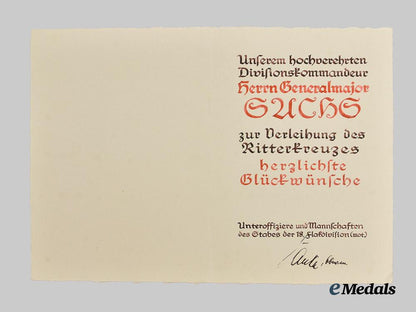 Unserem hochverehrten
Divisionskommandeur
Herrn Generalmajor
SACHS
zur Verleihung des
Ritterkreuzes
herzlichste
Glückwünsche
Unteroffiziere und Mannschaften
des Stabes der 18. Flakdivision (mot)
eMedals